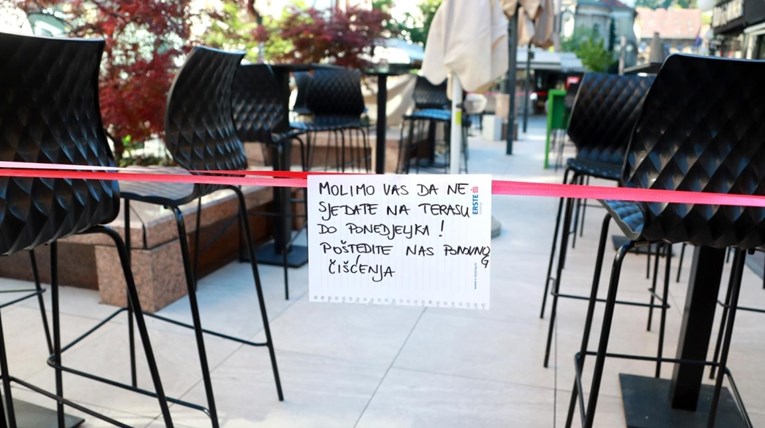 MOLIMO VAS DA NE
SJEDATE NA TERASU
DO PONEDJELJKA !
POŠTEDITE NAS PONOVNOG
ČIŠĆENJA
ERSTE